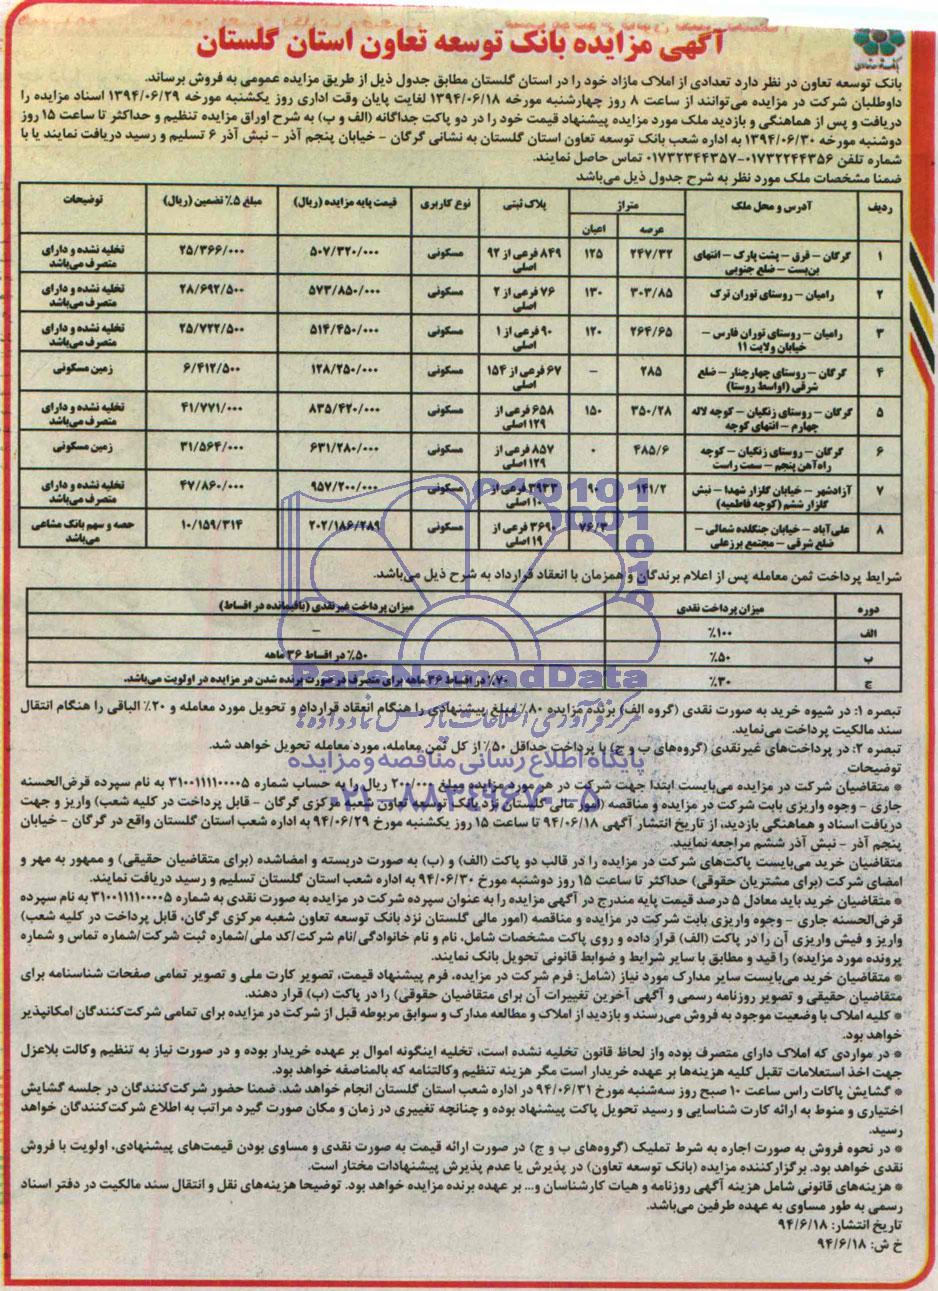 آگهی مزایده بانک توسعه تعاون استان گلستان
بانک توسعه تعاون در نظر دارد تعدادی از املاک مازاد خود را در استان گلستان مطابق جدول ذیل از طریق مزایده عمومی به فروش برساند.
داوطلبان شرکت در مزایده می‌توانند از ساعت ۸ روز چهارشنبه مورخه ۱۳۹۴/۰۶/۱۸ لغایت پایان وقت اداری روز یکشنبه مورخه ۱۳۹۴/۰۶/۲۹ اسناد مزایده را
دریافت و پس از هماهنگی و بازدید ملک مورد مزایده پیشنهاد قیمت خود را در دو پاکت جداگانه (الف و ب) به شرح اوراق مزایده تنظیم و حداکثر تا ساعت ۱۵ روز
دوشنبه مورخه ۱۳۹۴/۰۶/۳۰ به اداره شعب بانک توسعه تعاون استان گلستان به نشانی گرگان – خیابان پنجم آذر – نبش آذر ۶ تسلیم و رسید دریافت نمایند یا با
شماره تلفن ۰۱۷۳۲۲۴۴۳۵۶-۰۱۷۳۲۳۴۴۳۵۷ تماس حاصل نمایند.
ضمنا مشخصات ملک مورد نظر به شرح جدول ذیل می‌باشد
ردیف آدرس و محل ملک متراژ پلاک ثبتی نوع کاربری قیمت پایه مزایده (ریال) مبلغ ۵٪ تضمین (ریال) توضیحات
عرصه اعیان
۱ گرگان – قرق – پشت پارک – انتهای ۲۴۷/۳۲ ۱۲۵ ۸۴۹ فرعی از ۹۲ مسکونی ۵۰۷/۳۲۰/۰۰۰ ۲۵/۳۶۶/۰۰۰ تخلیه نشده و دارای
بن‌بست – ضلع جنوبی اصلی متصرف می‌باشد
۲ رامیان – روستای توران ترک ۳۰۳/۸۵ ۱۳۰ ۷۶ فرعی از ۲ مسکونی ۵۷۳/۸۵۰/۰۰۰ ۲۸/۶۹۲/۵۰۰ تخلیه نشده و دارای
اصلی متصرف می‌باشد
۳ رامیان – روستای توران فارس – ۲۶۴/۶۵ ۱۲۰ ۹۰ فرعی از ۱ مسکونی ۵۱۴/۴۵۰/۰۰۰ ۲۵/۷۲۲/۵۰۰ تخلیه نشده و دارای
خیابان ولایت ۱۱ اصلی متصرف می‌باشد
۴ گرگان – روستای چهارچنار – ضلع ۲۸۵ – ۶۷ فرعی از ۱۵۴ مسکونی ۱۲۸/۲۵۰/۰۰۰ ۶/۴۱۲/۵۰۰ زمین مسکونی
شرقی (اواسط روستا) اصلی
۵ گرگان – روستای زنگیان – کوچه لاله ۳۵۰/۲۸ ۱۵۰ ۶۵۸ فرعی از مسکونی ۸۳۵/۴۲۰/۰۰۰ ۴۱/۷۷۱/۰۰۰ تخلیه نشده و دارای
چهارم – انتهای کوچه ۱۲۹ اصلی متصرف می‌باشد
۶ گرگان – روستای زنگیان – کوچه ۴۸۵/۶ ۰ ۸۵۷ فرعی از مسکونی ۶۳۱/۲۸۰/۰۰۰ ۳۱/۵۶۴/۰۰۰ زمین مسکونی
راه‌آهن پنجم – سمت راست ۱۲۹ اصلی
۷ آزادشهر – خیابان گلزار شهدا – نبش ۱۴۱/۲ ۹۰ ۳۹۳۳ فرعی از مسکونی ۹۵۷/۲۰۰/۰۰۰ ۴۷/۸۶۰/۰۰۰ تخلیه نشده و دارای
گلزار ششم (کوچه فاطمیه) ۱۰ اصلی متصرف می‌باشد
۸ علی‌آباد – خیابان جنگلده شمالی – ۷۶/۳ ۳۶۹۰ فرعی از مسکونی ۲۰۲/۱۸۶/۲۸۹ ۱۰/۱۵۹/۳۱۴ حصه و سهم بانک مشاعی
ضلع شرقی – مجتمع برزعلی ۱۹ اصلی می‌باشد
شرایط پرداخت ثمن معامله پس از اعلام برندگان و همزمان با انعقاد قرارداد به شرح ذیل می‌باشد.
دوره میزان پرداخت نقدی میزان پرداخت غیرنقدی (باقیمانده در اقساط)
الف ۱۰۰٪ –
ب ۵۰٪ ۵۰٪ در اقساط ۳۶ ماهه
ج ۳۰٪ ۷۰٪ در اقساط ۳۶ ماهه برای متصرف در صورت برنده شدن در مزایده در اولویت می‌باشد.
تبصره ۱: در شیوه خرید به صورت نقدی (گروه الف) برنده مزایده ۸۰٪ مبلغ پیشنهادی را هنگام انعقاد قرارداد و تحویل مورد معامله و ۲۰٪ الباقی را هنگام انتقال
سند مالکیت پرداخت می‌نماید.
تبصره ۲: در پرداخت‌های غیرنقدی (گروه‌های ب و ج) با پرداخت حداقل ۵۰٪ از کل ثمن معامله، مورد معامله تحویل خواهد شد.
توضیحات
* متقاضیان شرکت در مزایده می‌بایست ابتدا جهت شرکت در هر مورد مزایده مبلغ ۲۰۰/۰۰۰ ریال را به حساب شماره ۳۱۰۰۱۱۱۱۰۰۰۰۵ به نام سپرده قرض‌الحسنه
جاری – وجوه واریزی بابت شرکت در مزایده و مناقصه (امور مالی گلستان نزد بانک توسعه تعاون شعبه مرکزی گرگان – قابل پرداخت در کلیه شعب) واریز و جهت
دریافت اسناد و هماهنگی بازدید، از تاریخ انتشار آگهی ۹۴/۰۶/۱۸ تا ساعت ۱۵ روز یکشنبه مورخ ۹۴/۰۶/۲۹ به اداره شعب استان گلستان واقع در گرگان – خیابان
پنجم آذر – نبش آذر ششم مراجعه نمایید.
متقاضیان خرید می‌بایست پاکت‌های شرکت در مزایده را در قالب دو پاکت (الف) و (ب) به صورت دربسته و امضاشده (برای متقاضیان حقیقی) و ممهور به مهر و
امضای شرکت (برای مشتریان حقوقی) حداکثر تا ساعت ۱۵ روز دوشنبه مورخ ۹۴/۰۶/۳۰ به اداره شعب استان گلستان تسلیم و رسید دریافت نمایند.
* متقاضیان خرید باید معادل ۵ درصد قیمت پایه مندرج در آگهی مزایده را به عنوان سپرده شرکت در مزایده به صورت نقدی به شماره ۳۱۰۰۱۱۱۱۰۰۰۰۵ به نام سپرده
قرض‌الحسنه جاری – وجوه واریزی بابت شرکت در مزایده و مناقصه (امور مالی گلستان نزد بانک توسعه تعاون شعبه مرکزی گرگان، قابل پرداخت در کلیه شعب)
واریز و فیش واریزی آن را در پاکت (الف) قرار داده و روی پاکت مشخصات شامل، نام و نام خانوادگی/نام شرکت/کد ملی/شماره ثبت شرکت/شماره تماس و شماره
پرونده مورد مزایده) را قید و مطابق با سایر شرایط و ضوابط قانونی تحویل بانک نمایند.
* متقاضیان خرید می‌بایست سایر مدارک مورد نیاز (شامل: فرم شرکت در مزایده، فرم پیشنهاد قیمت، تصویر کارت ملی و تصویر تمامی صفحات شناسنامه برای
متقاضیان حقیقی و تصویر روزنامه رسمی و آگهی آخرین تغییرات آن برای متقاضیان حقوقی) را در پاکت (ب) قرار دهند.
* کلیه املاک با وضعیت موجود به فروش می‌رسند و بازدید از املاک و مطالعه مدارک و سوابق مربوطه قبل از شرکت در مزایده برای تمامی شرکت‌کنندگان امکانپذیر
خواهد بود.
* در مواردی که املاک دارای متصرف بوده واز لحاظ قانون تخلیه نشده است، تخلیه اینگونه اموال بر عهده خریدار بوده و در صورت نیاز به تنظیم وکالت بلاعزل
جهت اخذ استعلامات تقبل کلیه هزینه‌ها بر عهده خریدار است مگر هزینه تنظیم وکالتنامه که بالمناصفه خواهد بود.
* گشایش پاکات راس ساعت ۱۰ صبح روز سه‌شنبه مورخ ۹۴/۰۶/۳۱ در اداره شعب استان گلستان انجام خواهد شد. ضمنا حضور شرکت‌کنندگان در جلسه گشایش
اختیاری و منوط به ارائه کارت شناسایی و رسید تحویل پاکت پیشنهاد بوده و چنانچه تغییری در زمان و مکان صورت گیرد مراتب به اطلاع شرکت‌کنندگان خواهد
رسید.
* در نحوه فروش به صورت اجاره به شرط تملیک (گروه‌های ب و ج) در صورت ارائه قیمت به صورت نقدی و مساوی بودن قیمت‌های پیشنهادی، اولویت با فروش
نقدی خواهد بود. برگزارکننده مزایده (بانک توسعه تعاون) در پذیرش یا عدم پذیرش پیشنهادات مختار است.
* هزینه‌های قانونی شامل هزینه آگهی روزنامه و هیات کارشناسان و... بر عهده برنده مزایده خواهد بود. توضیحا هزینه‌های نقل و انتقال سند مالکیت در دفتر اسناد
رسمی به طور مساوی به عهده طرفین می‌باشد.
تاریخ انتشار: ۹۴/۶/۱۸
خ ش: ۹۴/۶/۱۸
ParsNamadData
مرکز فرآوری اطلاعات پارس نماد داده‌ها
پایگاه اطلاع رسانی مناقصه و مزایده